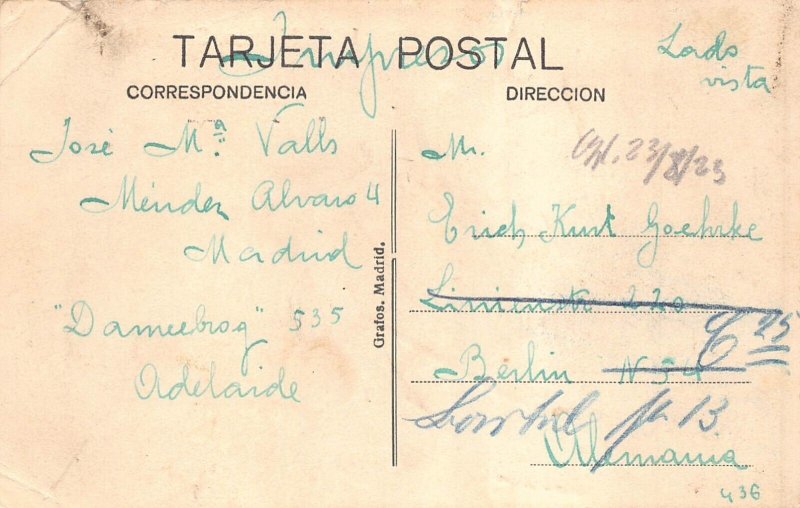 TARJETA POSTAL
Impreso
Lado
vista
CORRESPONDENCIA
DIRECCION
José Mª. Valls
Méndez Alvaro 4
Madrid
"Dameebrog" 535
Adelaide
Grafos. Madrid.
Mr.
23/8/23
Erich Kurt Goehrke
Linienstr 220
C 25
Berlin N 54
13
Alemania
436